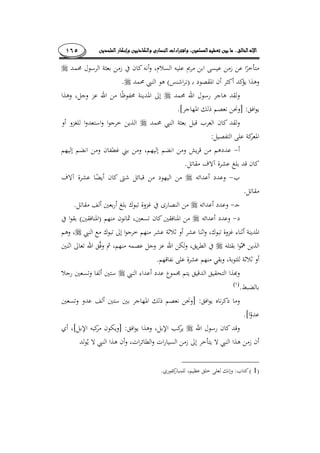 الإله الخالق.. ما بين تعظيم المسلمين، وافتراءات النصارى والغنوصيين وإنكار الملحدين ١٦٥
متأخرًا عن زمن عيسى ابن مريم عليه السلام، وأنه كان في زمن بعثة الرسول محمد ﷺ
وهذا يؤكد أكثر أن المقصود بـ(نراشنس) هو النبي محمد ﷺ.
ولقد هاجر رسول الله محمد ﷺ إلى المدينة محفوظًا من الله عز وجل، وهذا
يوافق: [ونحن نعصم ذلك المهاجر].
ولقد كان العرب قبل بعثة النبي محمد ﷺ الذين خرجوا واستعدوا للغزو أو
المعركة على التفصيل:
أ- عددهم من قريش ومن انضم إليهم، ومن بني غطفان ومن انضم إليهم
كان قد بلغ عشرة آلاف مقاتل.
ب- وعدد أعدائه ﷺ من اليهود من قبائل شتى كان أيضًا عشرة آلاف
مقاتل.
جـ- وعدد أعدائه ﷺ من النصارى في غزوة تبوك بلغ أربعين ألف مقاتل.
د- وعدد أعدائه ﷺ من المنافقين كان تسعين، ثمانون منهم (المنافقين) بقوا في
المدينة أثناء غزوة تبوك، واثنا عشر أو ثلاثة عشر منهم خرجوا إلى تبوك مع النبي ﷺ، وهم
الذين همُّوا بقتله ﷺ في الطريق، ولكن الله عز وجل عصمه منهم، ثم وفَّق الله تعالى اثنين
أو ثلاثة للتوبة، وبقي منهم عشرة على نفاقهم.
وبهذا التحقيق الدقيق يتم مجموع عدد أعداء النبي ﷺ ستين ألفا وتسعين رجلا
بالضبط. (1)
وما ذكرناه يوافق: [ونحن نعصم ذلك المهاجر بين ستين ألف عدو وتسعين
عدوًا].
وقد كان رسول الله ﷺ يركب الإبل، وهذا يوافق: [ويكون مركبه الإبل]، أي
أن زمن هذا النبي لا يتأخر إلى زمن السيارات والطائرات، وأن هذا النبي لا يُولد
(1 كتاب: وإنك لعلى خلق عظيم، للمباركفوري.